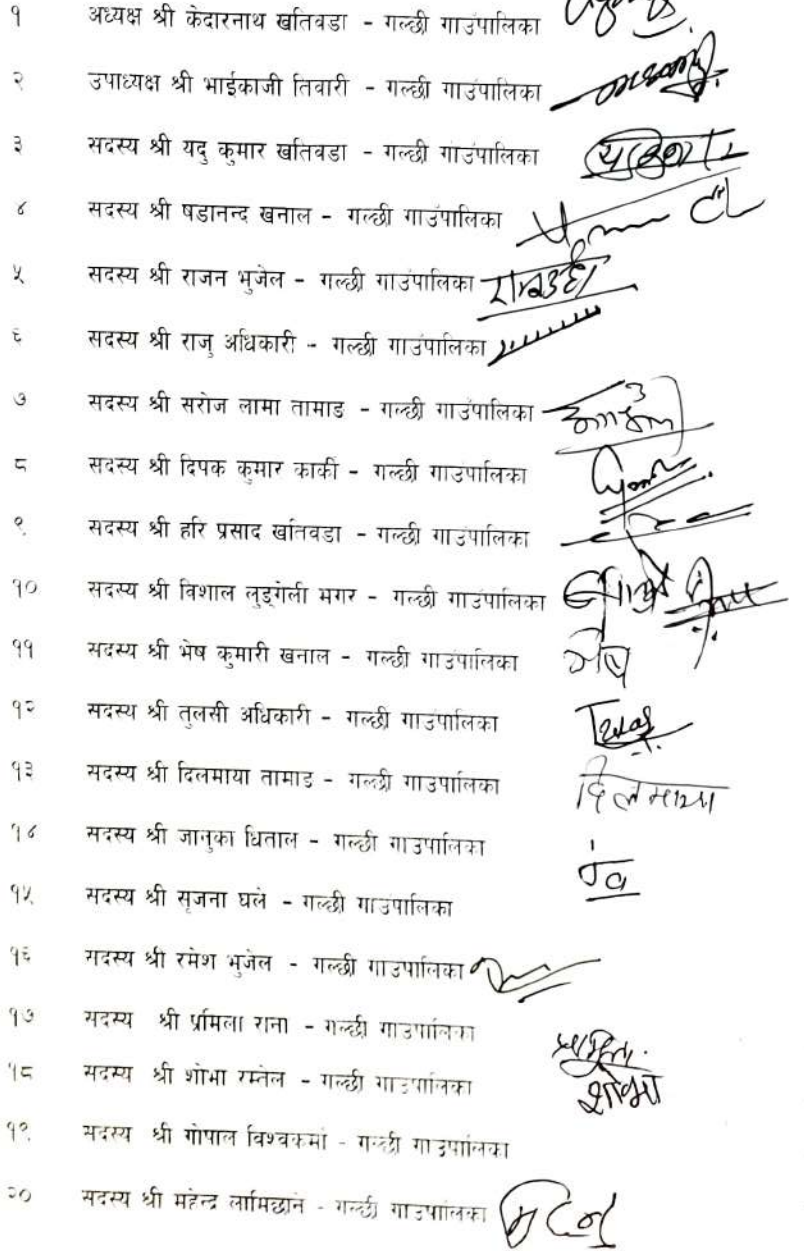 १ अध्यक्ष श्री केदारनाथ खतिवडा - गल्छी गाउंपालिका
२ उपाध्यक्ष श्री भाईकाजी तिवारी - गल्छी गाउंपालिका
३ सदस्य श्री यदु कुमार खतिवडा - गल्छी गाउंपालिका
४ सदस्य श्री षडानन्द खनाल - गल्छी गाउंपालिका
५ सदस्य श्री राजन भुजेल - गल्छी गाउंपालिका
६ सदस्य श्री राजु अधिकारी - गल्छी गाउंपालिका
७ सदस्य श्री सरोज लामा तामाङ - गल्छी गाउंपालिका
८ सदस्य श्री दिपक कुमार कार्की - गल्छी गाउंपालिका
९ सदस्य श्री हरि प्रसाद खतिवडा - गल्छी गाउंपालिका
१० सदस्य श्री विशाल लुङ्गेली मगर - गल्छी गाउंपालिका
११ सदस्य श्री भेष कुमारी खनाल - गल्छी गाउंपालिका भेष
१२ सदस्य श्री तुलसी अधिकारी - गल्छी गाउंपालिका
१३ सदस्य श्री दिलमाया तामाङ - गल्छी गाउंपालिका दिलमाया
१४ सदस्य श्री जानुका धिताल - गल्छी गाउंपालिका
१५ सदस्य श्री सृजना घले - गल्छी गाउंपालिका
१६ सदस्य श्री रमेश भुजेल - गल्छी गाउंपालिका
१७ सदस्य श्री प्रमिला राना - गल्छी गाउंपालिका
१८ सदस्य श्री शोभा रम्तेल - गल्छी गाउंपालिका शोभा
१९ सदस्य श्री गोपाल विश्वकर्मा - गल्छी गाउंपालिका
२० सदस्य श्री महेन्द्र लामिछाने - गल्छी गाउंपालिका